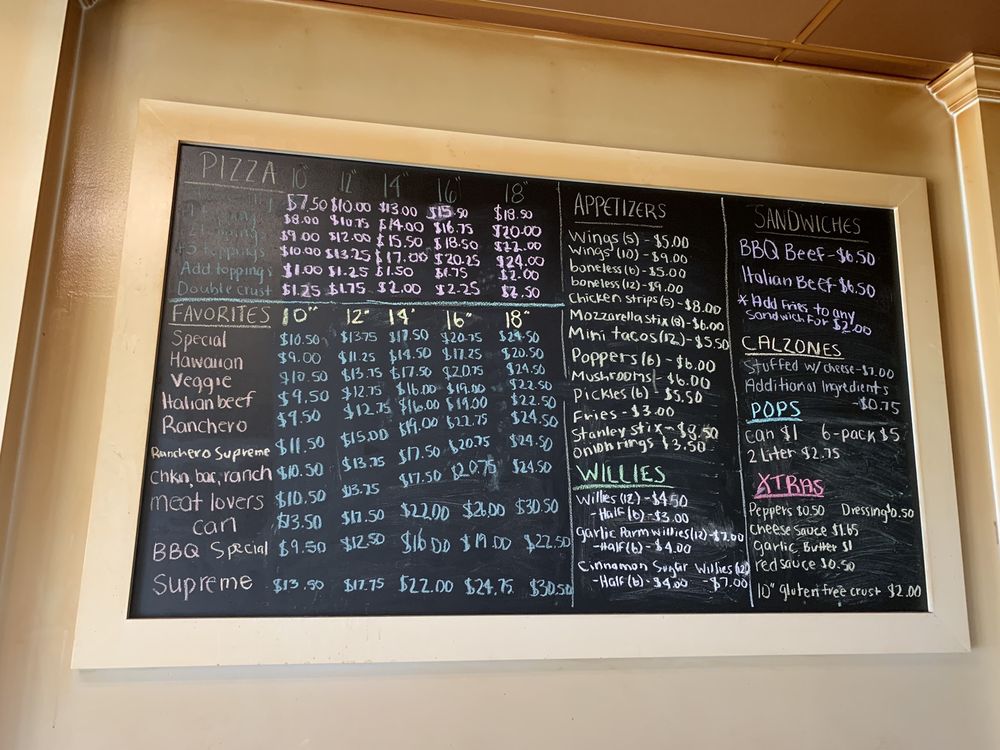 PIZZA 10" 12" 14" 16" 18"
$7.50 $10.00 $13.00 $15.50 $18.50
$8.00 $10.75 $14.00 $16.75 $20.00
toppings $9.00 $12.00 $15.50 $18.50 $22.00
toppings $10.00 $13.25 $17.00 $20.25 $24.00
Add toppings $1.00 $1.25 $1.50 $1.75 $2.00
Double crust $1.25 $1.75 $2.00 $2.25 $2.50
FAVORITES 10" 12" 14" 16" 18"
Special $10.50 $13.75 $17.50 $20.75 $24.50
Hawaiian $9.00 $11.25 $14.50 $17.25 $20.50
Veggie $10.50 $13.75 $17.50 $20.75 $24.50
Italian beef $9.50 $12.75 $16.00 $19.00 $22.50
Ranchero $9.50 $12.75 $16.00 $19.00 $22.50
Ranchero Supreme $11.50 $15.00 $19.00 $22.75 $24.50
chkn, bac, ranch $10.50 $13.75 $17.50 $20.75 $24.50
meat lovers $10.50 $13.75 $17.50 $20.75 $24.50
can $13.50 $17.50 $22.00 $26.00 $30.50
BBQ Special $9.50 $12.50 $16.00 $19.00 $22.50
Supreme $13.50 $17.75 $22.00 $24.75 $30.50
APPETIZERS
Wings (5) - $5.00
Wings (10) - $9.00
boneless (6) - $5.00
boneless (12) - $9.00
Chicken strips (5) - $8.00
Mozzarella stix (8) - $6.00
Mini tacos (12) - $5.50
Poppers (6) - $6.00
Mushrooms - $6.00
Pickles (6) - $5.50
Fries - $3.00
Stanley stix - $8.50
onion rings $3.50
WILLIES
Willies (12) - $4.50
- Half (6) - $3.00
garlic Parm willies (12) - $7.00
- Half (6) - $4.00
Cinnamon Sugar Willies (12)
- Half (6) - $4.00 - $7.00
SANDWICHES
BBQ Beef - $6.50
Italian Beef - $6.50
* Add Fries to any
Sandwich For $2.00
CALZONES
Stuffed w/ cheese - $7.00
Additional Ingredients
- $0.75
POPS
can $1 6-pack $5
2 Liter $2.75
XTRAS
Peppers $0.50 Dressing $0.50
cheese sauce $1.65
garlic Butter $1
red sauce $0.50
10" gluten free crust $2.00